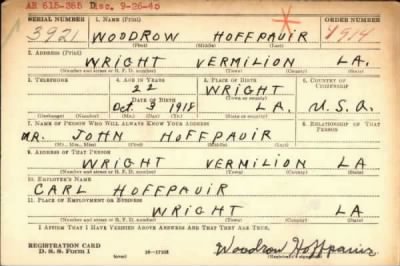 AR 615-385 Disc. 9-26-45
SERIAL NUMBER 1. NAME (Print) ORDER NUMBER
3921 WOODROW HOFFPAUIR 1914
(First) (Middle) (Last)
2. ADDRESS (Print)
WRIGHT VERMILION LA.
(Number and street or R. F. D. number) (Town) (County) (State)
3. TELEPHONE 4. AGE IN YEARS 5. PLACE OF BIRTH 6. COUNTRY OF CITIZENSHIP
22 WRIGHT
DATE OF BIRTH (Town or county)
Oct. 3 1918 LA. U.S.A.
(Exchange) (Number) (Mo.) (Day) (Yr.) (State or country)
7. NAME OF PERSON WHO WILL ALWAYS KNOW YOUR ADDRESS 8. RELATIONSHIP OF THAT PERSON
MR. JOHN HOFFPAUIR
(Mr., Mrs., Miss) (First) (Middle) (Last)
9. ADDRESS OF THAT PERSON
WRIGHT VERMILION LA
(Number and street or R. F. D. number) (Town) (County) (State)
10. EMPLOYER'S NAME
CARL HOFFPAUIR
11. PLACE OF EMPLOYMENT OR BUSINESS
WRIGHT LA
(Number and street or R. F. D. number) (Town) (County) (State)
I AFFIRM THAT I HAVE VERIFIED ABOVE ANSWERS AND THAT THEY ARE TRUE.
REGISTRATION CARD
D. S. S. Form 1 Woodrow Hoffpauir